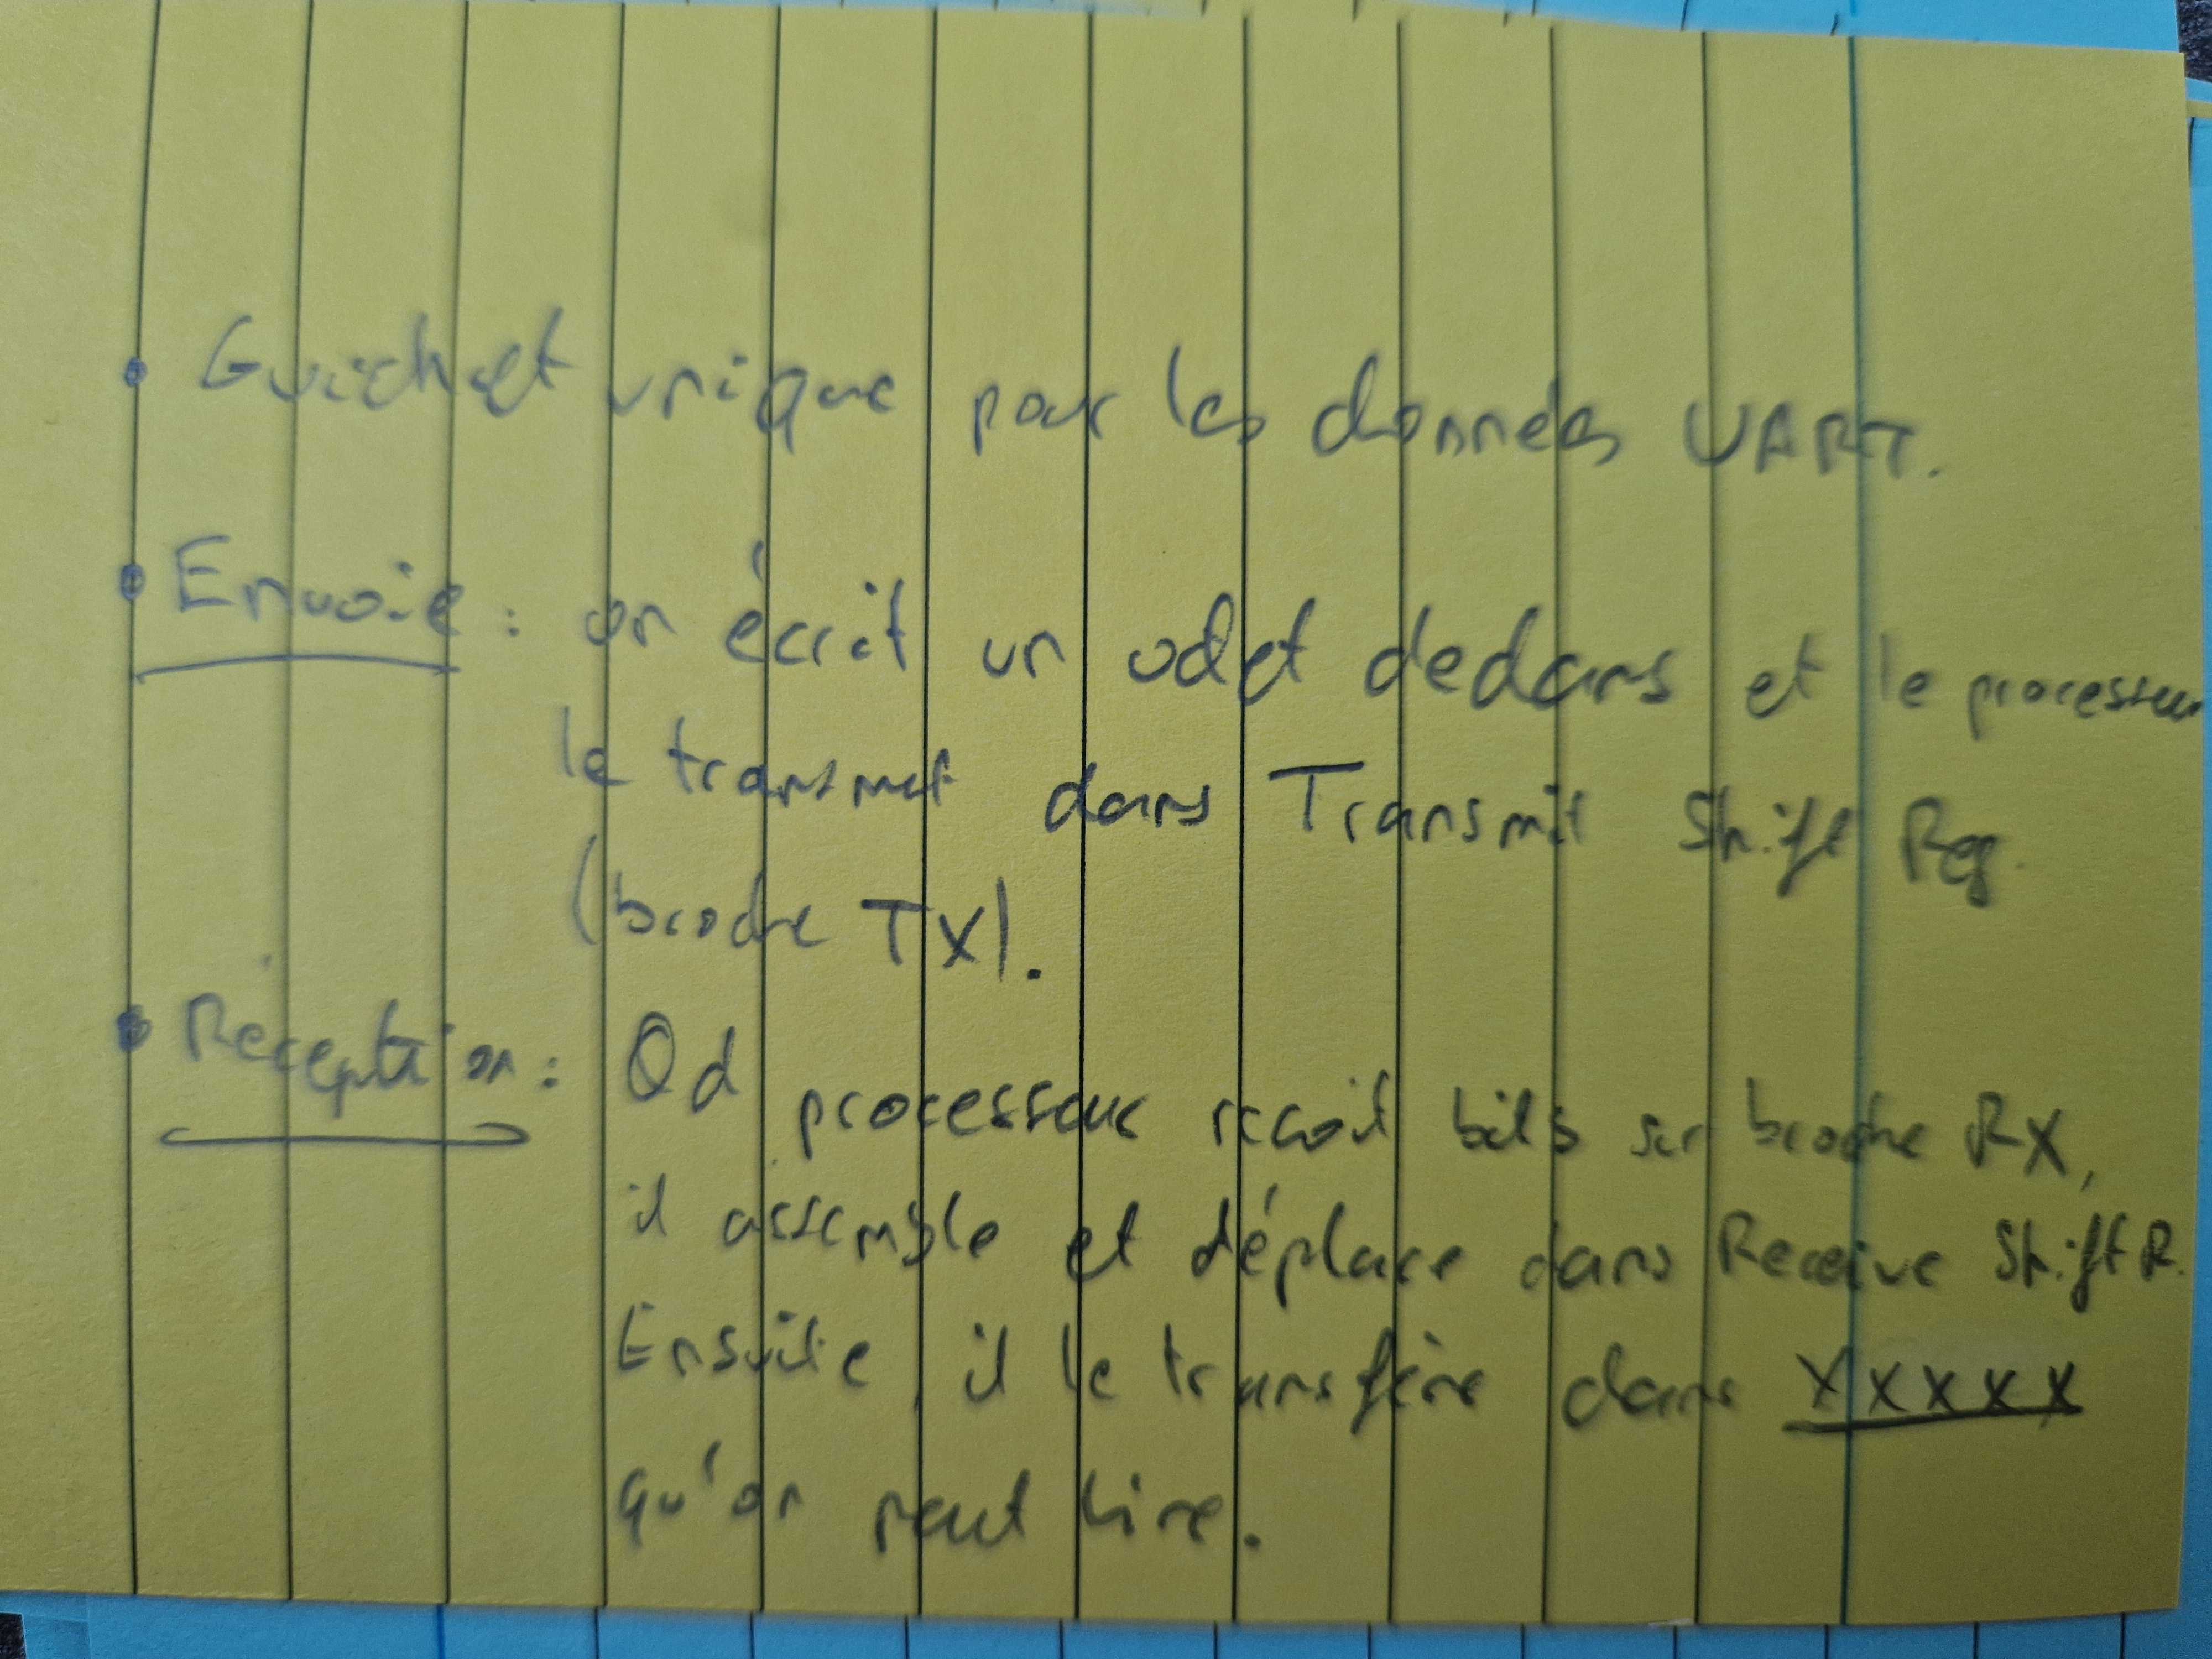 • Guichet unique pour les données UART.
• Envoie : on écrit un octet dedans et le processeur
le transmet dans Transmit Shift Reg.
(broche TX).
• Réception : Qd processeur reçoit bits sur broche RX,
il assemble et déplace dans Receive Shift R.
Ensuite, il le transfère dans XXXXX
qu'on peut lire.